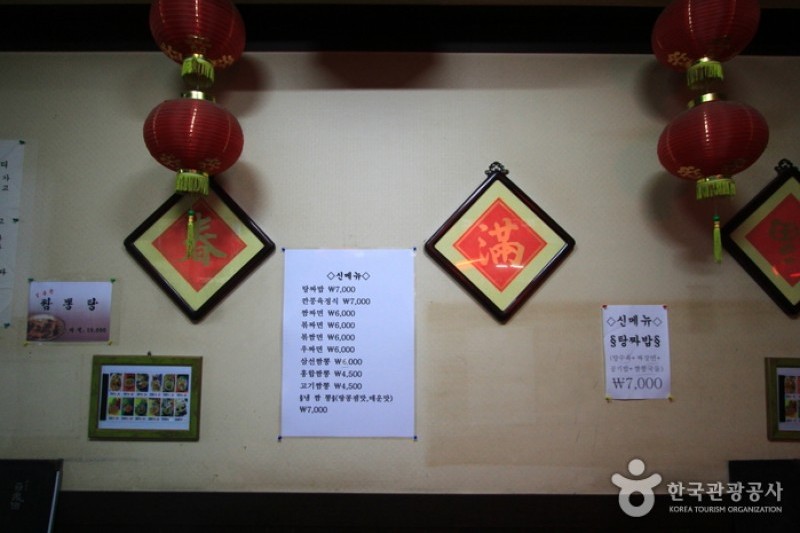 春
滿
짬뽕탕
◇신메뉴◇
탕짜밥 ₩7,000
깐풍육정식 ₩7,000
짬짜면 ₩6,000
볶짜면 ₩6,000
볶짬면 ₩6,000
우짜면 ₩6,000
삼선짬뽕 ₩6,000
홍합짬뽕 ₩4,500
고기짬뽕 ₩4,500
§냉 짬 뽕§(땅콩잼맛,매운맛)
₩7,000
◇신메뉴◇
§탕짜밥§
(탕수육+ 짜장면+
공기밥+ 짬뽕국물)
₩7,000
한국관광공사
KOREA TOURISM ORGANIZATION